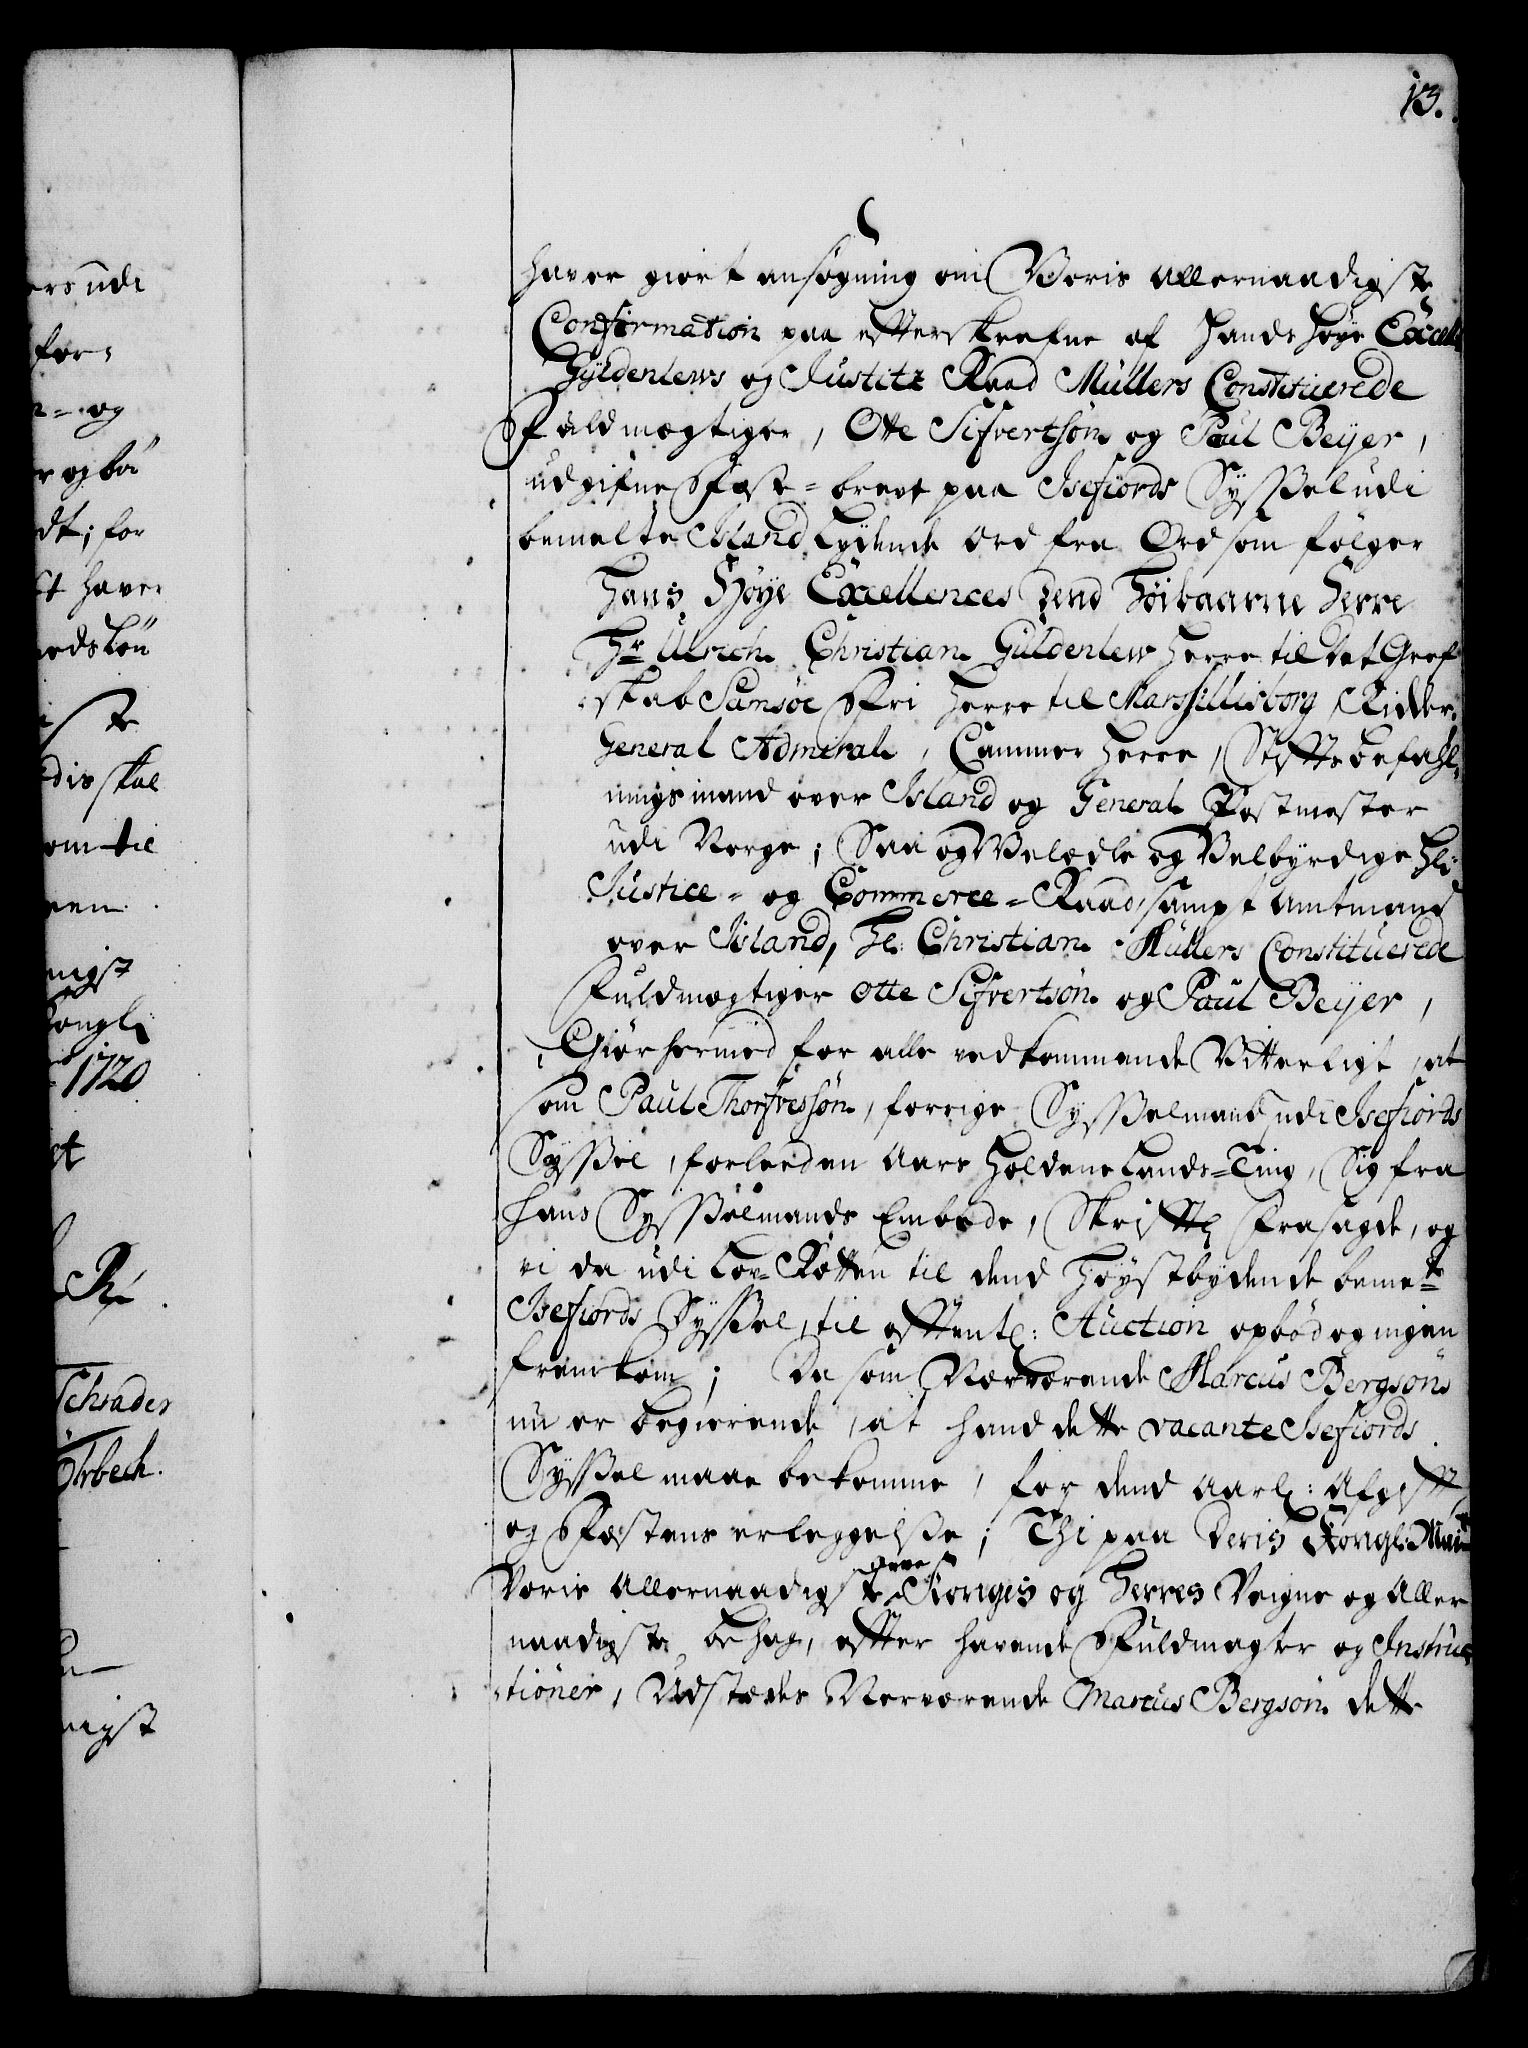 13.
haver giort ansøgning om Voris allernaadigste
Confirmation paa efterskrefne af Hands høye Excell:
Gyldenlews og Justitz Raad Müllers Constituerede
Fuldmægtiger, Otte Sifvertsøn og Paul Beyer,
udgifne Fæste-brev paa Isefiords Syssel udi
bemelte Island Lydende Ord fra Ord som følger
Hans Høye Excellences Dend Høibaarne Herre
Hr Ulrich Christian Güldenlew Herre til Det Gref
skab Samsøe Fri Herre til Marsillisborg, Ridder,
General Admiral, Cammer Herre, Stiftsbefahl,
nings mand over Island og General Postmester
udi Norge; Saa og Velædle og Velbyrdige Hr:
Justice- og Commerce-Raad, sampt Amtmand
over Island, Hr: Christian Müllers Constituerede
Fuldmægtiger Otte Sifvertsøn og Paul Beyer,
Giør hermed for alle vedkommende Vitterligt, at
som Paul Thorfvessøn, forrige Sysselmand udi Isefiords
Syssel, forleeden Aars holdene Lands-Ting, Sig fra
hans Sysselmands Embede, Skriftl: Frasagde, og
vi da udi Lov-Retten til dend Høystbydende bemte
Isefiords Syssel, til offentl: Auction opbød og ingen
fremkom; Da som Nærværende Marcus Bergsøn
nu er begierende, at hand dette vacante Isefiords
Syssel maae bekomme, for dend aarl: Afgift,
og Fæstens erleggelse; Thi paa Deris Kongl: Mai:ts
Voris Allernaadigste Arve Konges og Herres Veigne og Aller
naadigste behag, efter havende Fuldmagter og Instruc
tioner, Udstædes Nerværende Marcus Bergsøn dette
ers udi
for,
n- og
r og bø
dt; for
et haver
iste
dis skal
om til
een.
nigst
Kongl:
1720
et
R.
Schrader
nigst